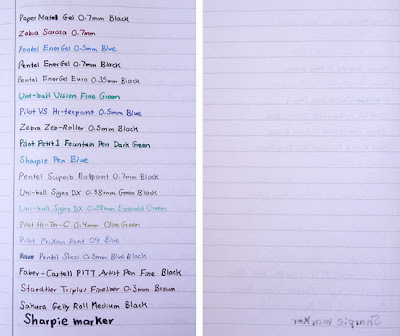 Paper Mate Gel 0.7mm Black
Zebra Sarasa 0.7mm
Pentel EnerGel 0.5mm Blue
Pentel EnerGel 0.7mm Black
Pentel EnerGel Euro 0.35mm Black
Uni-ball Vision Fine Green
Pilot V5 Hi-tecpoint 0.5mm Blue
Zebra Zeb-Roller 0.5mm Black
Pilot Petit1 Fountain Pen Dark Green
Sharpie Pen Blue
Pentel Superb Ballpoint 0.7mm Black
Uni-ball Signo DX 0.38mm Green Black
Uni-ball Signo DX 0.28mm Emerald Green
Pilot Hi-Tec-C 0.4mm Olive Green
Pilot FriXion Point 04 Blue
Pentel Slicci 0.3mm Blue Black
Faber-Castell PITT Artist Pen Fine Black
Staedtler Triplus Fineliner 0.3mm Brown
Sakura Gelly Roll Medium Black
Sharpie marker
Sharpie marker